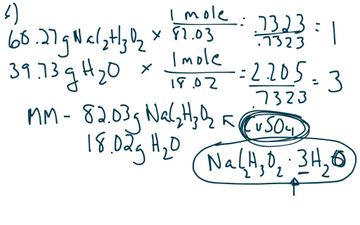 6)
60.27g NaC₂H₃O₂ × 1 mole/82.03 = .7323/.7323 = 1
39.73g H₂O × 1 mole/18.02 = 2.205/.7323 = 3
MM - 82.03g NaC₂H₃O₂ ← CuSO₄
18.02g H₂O
NaC₂H₃O₂ · 3H₂O